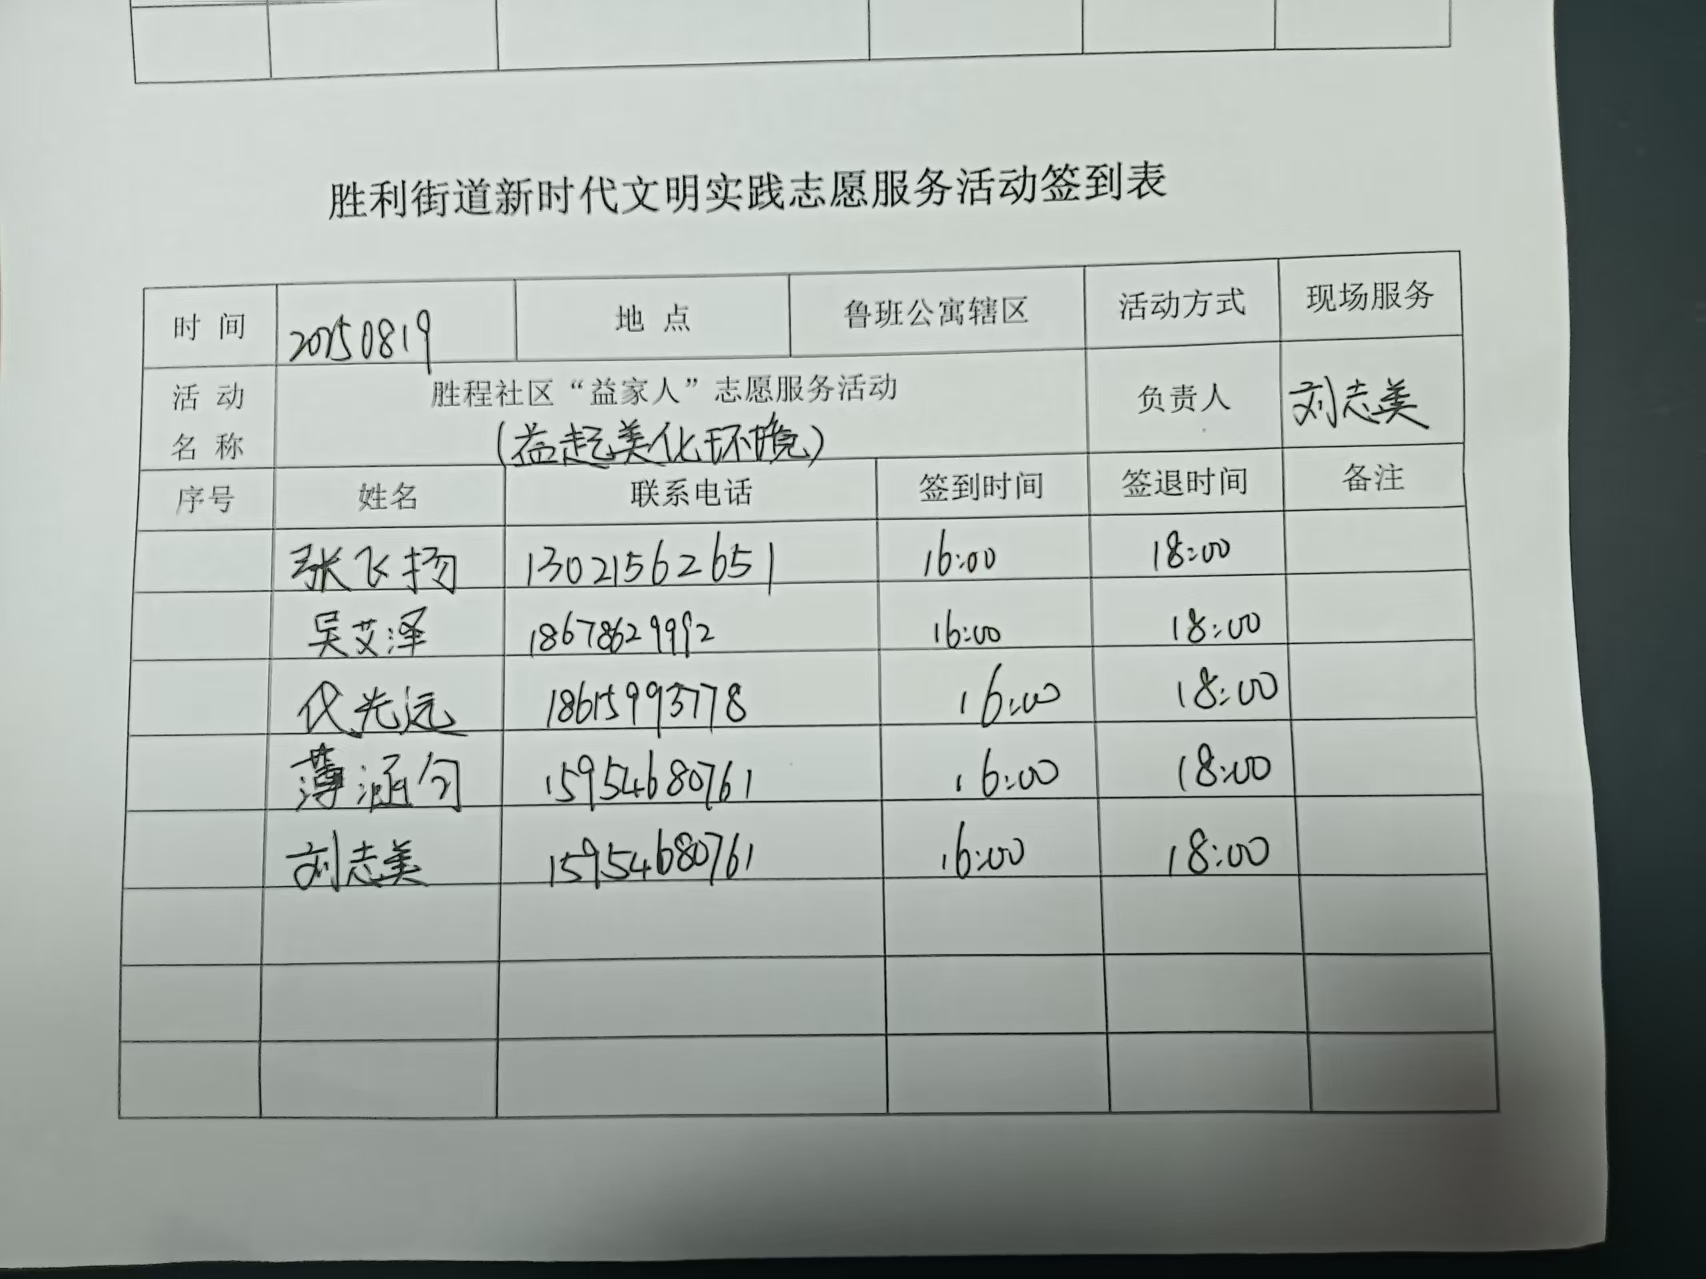 胜利街道新时代文明实践志愿服务活动签到表
时 间 20250819 地 点 鲁班公寓辖区 活动方式 现场服务
活 动 胜程社区“益家人”志愿服务活动 负责人 刘志美
名 称 (益起美化环境)
序号 姓名 联系电话 签到时间 签退时间 备注
张飞扬 13021562651 16:00 18:00
吴艾泽 18678629992 16:00 18:00
代光远 18615993778 16:00 18:00
薄涵匀 15954680761 16:00 18:00
刘志美 15954680761 16:00 18:00